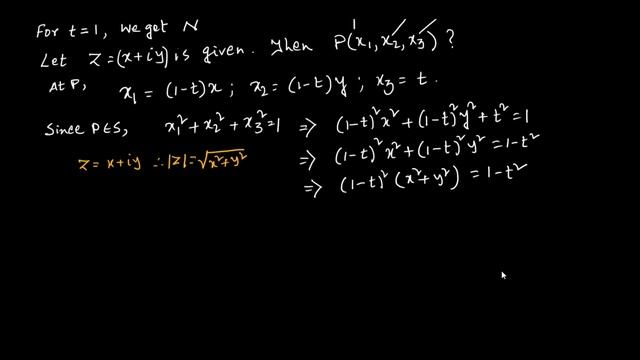 For t=1, we get N
Let z=(x+iy) is given. Then P(x₁, x₂, x₃) ?
At P, x₁ = (1-t)x ; x₂ = (1-t)y ; x₃ = t.
Since P∈S, x₁²+x₂²+x₃²=1 ⇒ (1-t)²x²+(1-t)²y²+t²=1
z = x+iy ∴ |z|=√x²+y² ⇒ (1-t)²x²+(1-t)²y²=1-t²
⇒ (1-t)²(x²+y²) = 1-t²